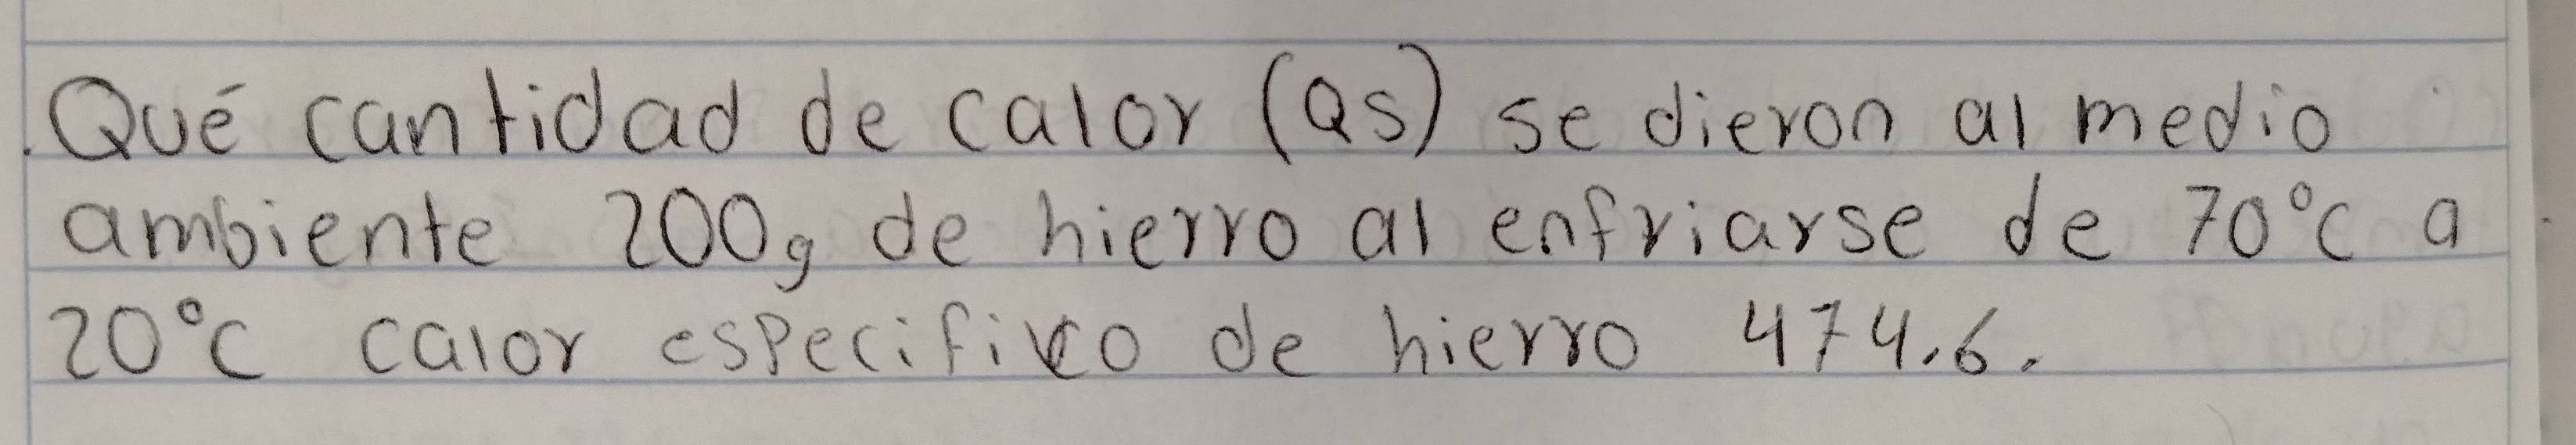 .Qué cantidad de calor (Qs) se dieron al medio
ambiente 200g de hierro al enfriarse de 70°C a
20°C calor especifico de hierro 474.6.